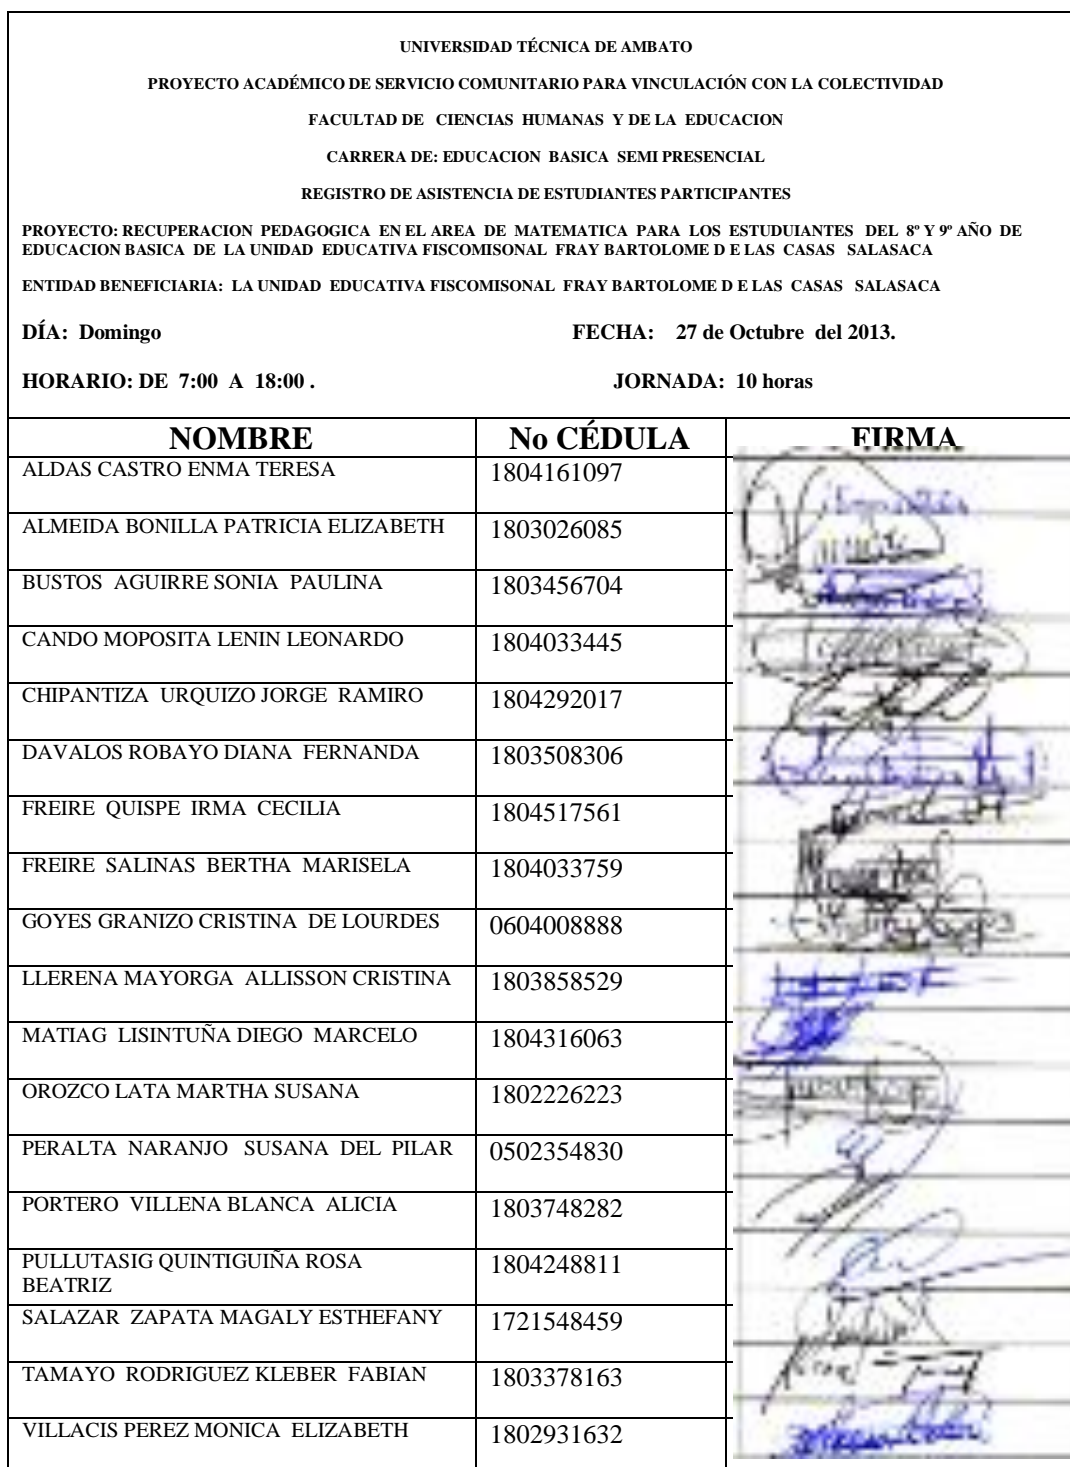 UNIVERSIDAD TÉCNICA DE AMBATO
PROYECTO ACADÉMICO DE SERVICIO COMUNITARIO PARA VINCULACIÓN CON LA COLECTIVIDAD
FACULTAD DE CIENCIAS HUMANAS Y DE LA EDUCACION
CARRERA DE: EDUCACION BASICA SEMI PRESENCIAL
REGISTRO DE ASISTENCIA DE ESTUDIANTES PARTICIPANTES
PROYECTO: RECUPERACION PEDAGOGICA EN EL AREA DE MATEMATICA PARA LOS ESTUDUIANTES DEL 8º Y 9º AÑO DE
EDUCACION BASICA DE LA UNIDAD EDUCATIVA FISCOMISONAL FRAY BARTOLOME D E LAS CASAS SALASACA
ENTIDAD BENEFICIARIA: LA UNIDAD EDUCATIVA FISCOMISONAL FRAY BARTOLOME D E LAS CASAS SALASACA
DÍA: Domingo FECHA: 27 de Octubre del 2013.
HORARIO: DE 7:00 A 18:00 . JORNADA: 10 horas
NOMBRE No CÉDULA FIRMA
ALDAS CASTRO ENMA TERESA 1804161097
ALMEIDA BONILLA PATRICIA ELIZABETH 1803026085
BUSTOS AGUIRRE SONIA PAULINA 1803456704
CANDO MOPOSITA LENIN LEONARDO 1804033445
CHIPANTIZA URQUIZO JORGE RAMIRO 1804292017
DAVALOS ROBAYO DIANA FERNANDA 1803508306
FREIRE QUISPE IRMA CECILIA 1804517561
FREIRE SALINAS BERTHA MARISELA 1804033759
GOYES GRANIZO CRISTINA DE LOURDES 0604008888
LLERENA MAYORGA ALLISSON CRISTINA 1803858529
MATIAG LISINTUÑA DIEGO MARCELO 1804316063
OROZCO LATA MARTHA SUSANA 1802226223
PERALTA NARANJO SUSANA DEL PILAR 0502354830
PORTERO VILLENA BLANCA ALICIA 1803748282
PULLUTASIG QUINTIGUIÑA ROSA 1804248811
BEATRIZ
SALAZAR ZAPATA MAGALY ESTHEFANY 1721548459
TAMAYO RODRIGUEZ KLEBER FABIAN 1803378163
VILLACIS PEREZ MONICA ELIZABETH 1802931632